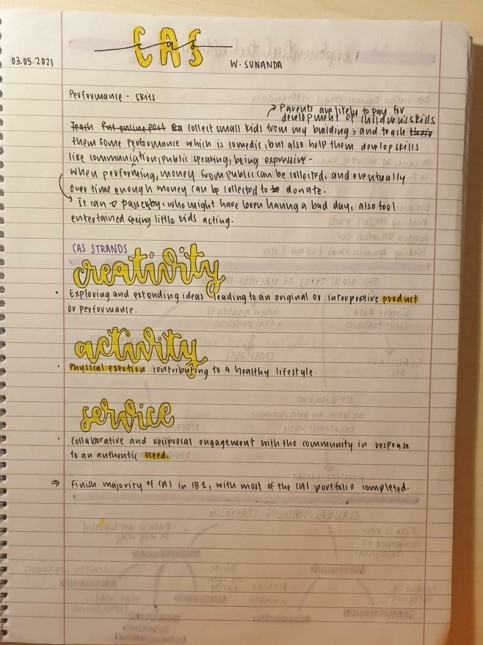 CAS
03.05.2021
W. SUNANDA
Performance - skits
→ Parents are likely to pay for
development of children's skills
collect small kids from my building, and teach
them some performance which is comedic, but also help them develop skills
like communication, public speaking, being expressive.
When performing, money from public can be collected, and eventually
over time enough money can be collected to donate.
It can passerby, who might have been having a bad day, also feel
entertained seeing little kids acting.
CAS STRANDS
creativity
• Exploring and extending ideas leading to an original or interpretive product
or performance.
activity
• Physical exertion contributing to a healthy lifestyle.
service
• collaborative and reciprocal engagement with the community in response
to an authentic need.
⇒ Finish majority of CAS in IB1, with most of the CAS portfolio completed.